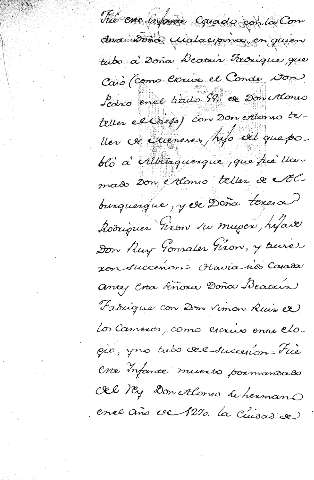 Fué este infante casado con la Con
desa Doña Malaspina, en quien
tubo á Doña Beatriz Fadrique, que
Casó (como escrive el Conde Don
Pedro en el titulo de Don Alonso
tellez el Corço) con Don Alonso te-
llez de Meneses, hijo del que po-
bló á Alburquerque, que fué lla-
mado Don Alonso tellez de Al-
burquerque, y de Doña teresa
Rodriguez Giron su muger, hija de
Don Ruy Gonzalez Giron, y tuvie
ron succesion: Havia sido Casada
antes esta señora Doña Beatriz
Fabrique con Don Simon Ruiz de
los Cameros, como escrivo en el elo-
gio, y no tubo del succesion. Fué
este Infante muerto por mandado
del Rey Don Alonso su hermano
en el año de 1270. la Ciudad de